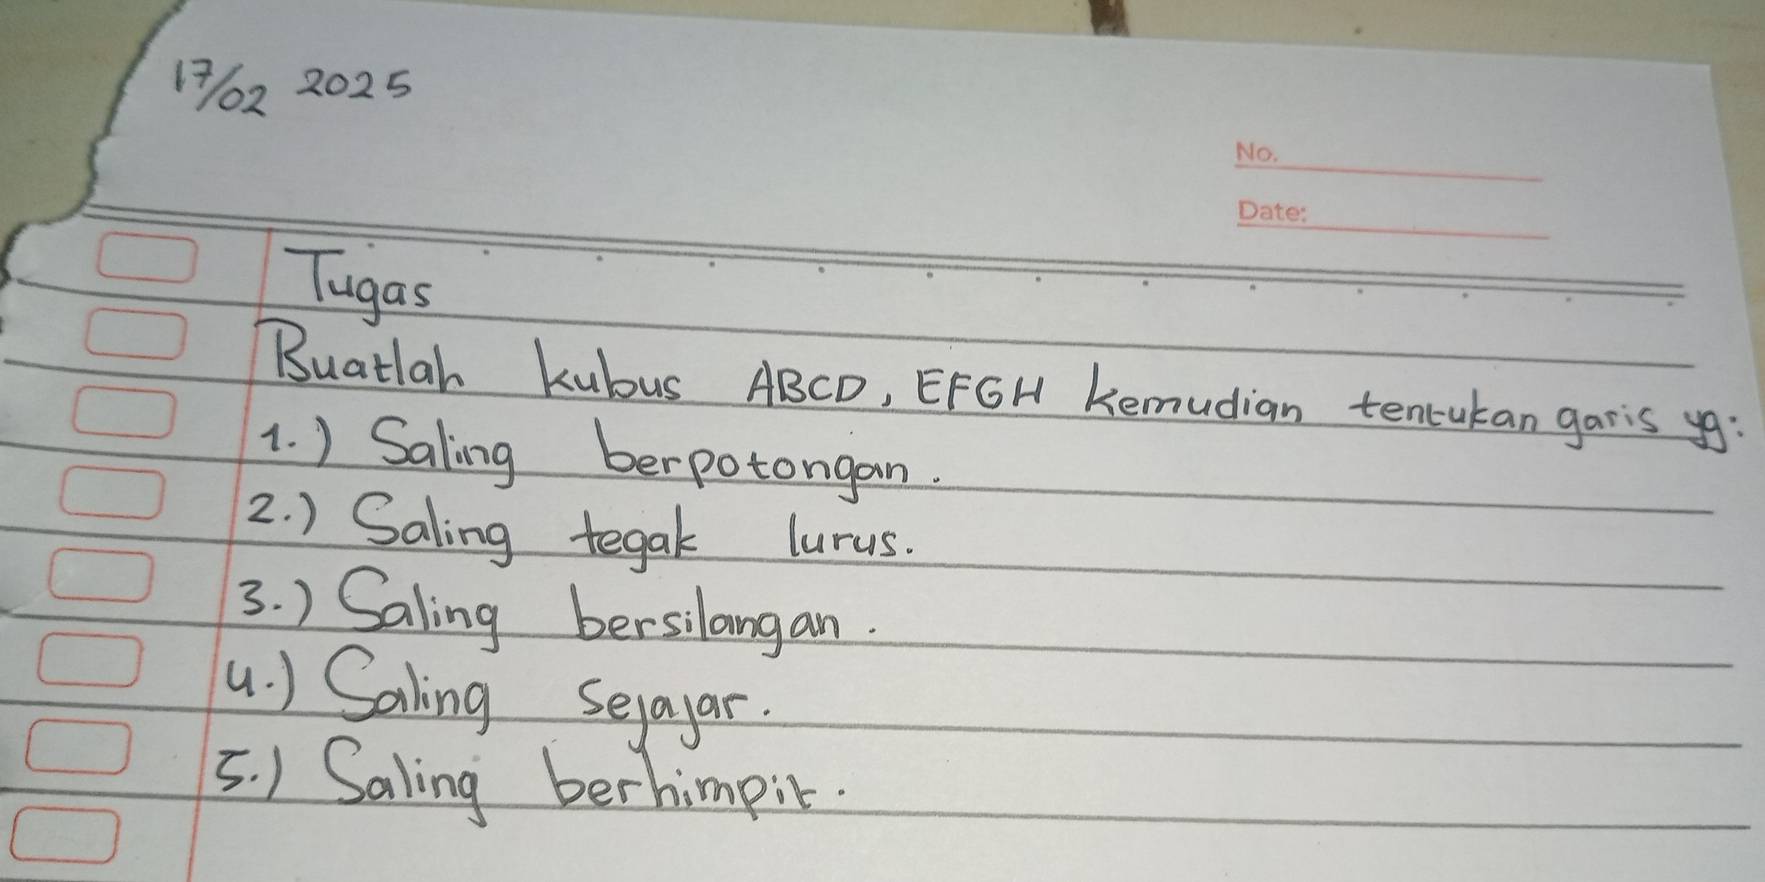 17/02 2025
No.
Date:
Tugas
Buatlah kubus ABCD, EFGH kemudian tentukan garis yg:
1.) Saling berpotongan.
2.) Saling tegak lurus.
3.) Saling bersilangan.
4.) Saling sejajar.
5.) Saling berhimpit.